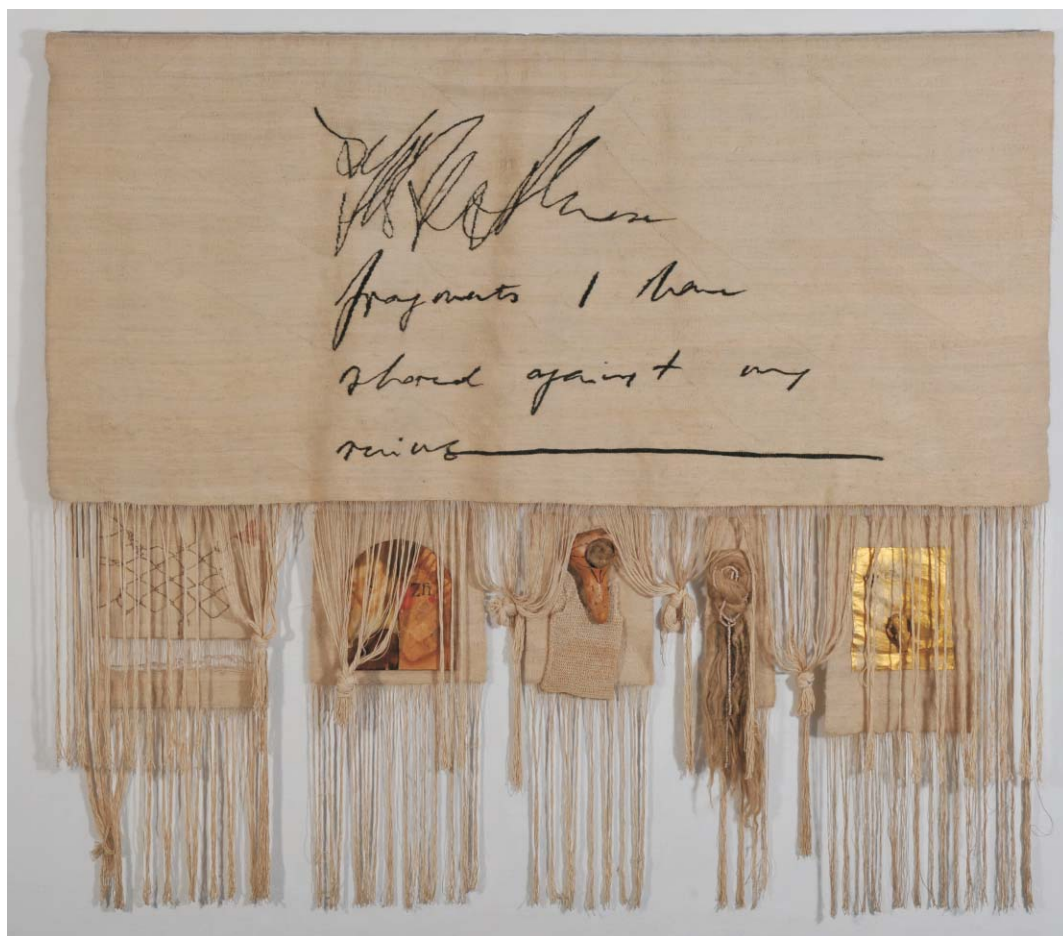 These
fragments I have
shored against my
ruins